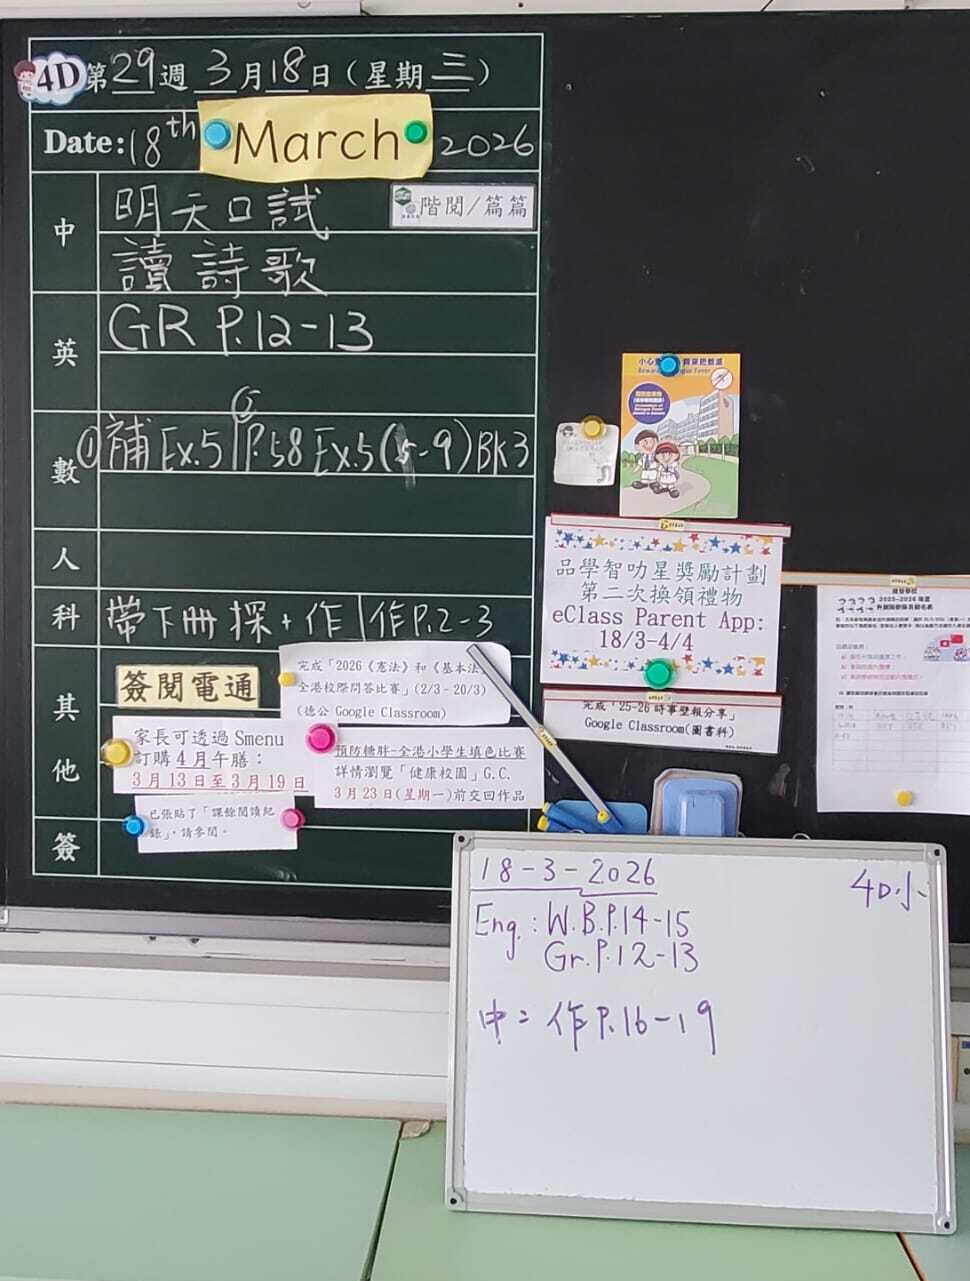 4D 第29週 3月18日(星期三)
Date: 18th March 2026
中 明天口試 階閱/篇篇
讀詩歌
英 GR P.12-13
數 ① 補 Ex.5 P.58 Ex.5(5-9) BK3
人
科 帶下冊探+作 作P.2-3
其他 簽閱電通
完成「2026《憲法》和《基本法
全港校際問答比賽」(2/3-20/3)
(德公 Google Classroom)
家長可透過 Smenu
訂購4月午膳:
3月13日至3月19日
預防糖胖-全港小學生填色比賽
詳情瀏覽「健康校園」G.C.
3月23日(星期一)前交回作品
已張貼了「課餘閱讀紀
錄」,請參閱。
簽
小心
品學智叻星獎勵計劃
第二次換領禮物
eClass Parent App:
18/3-4/4
完成「25-26 時事壁報分享」
Google Classroom(圖書科)
2025-2026
18-3-2026 4D小
Eng.: W.B.P.14-15
Gr.P.12-13
中: 作P.16-19